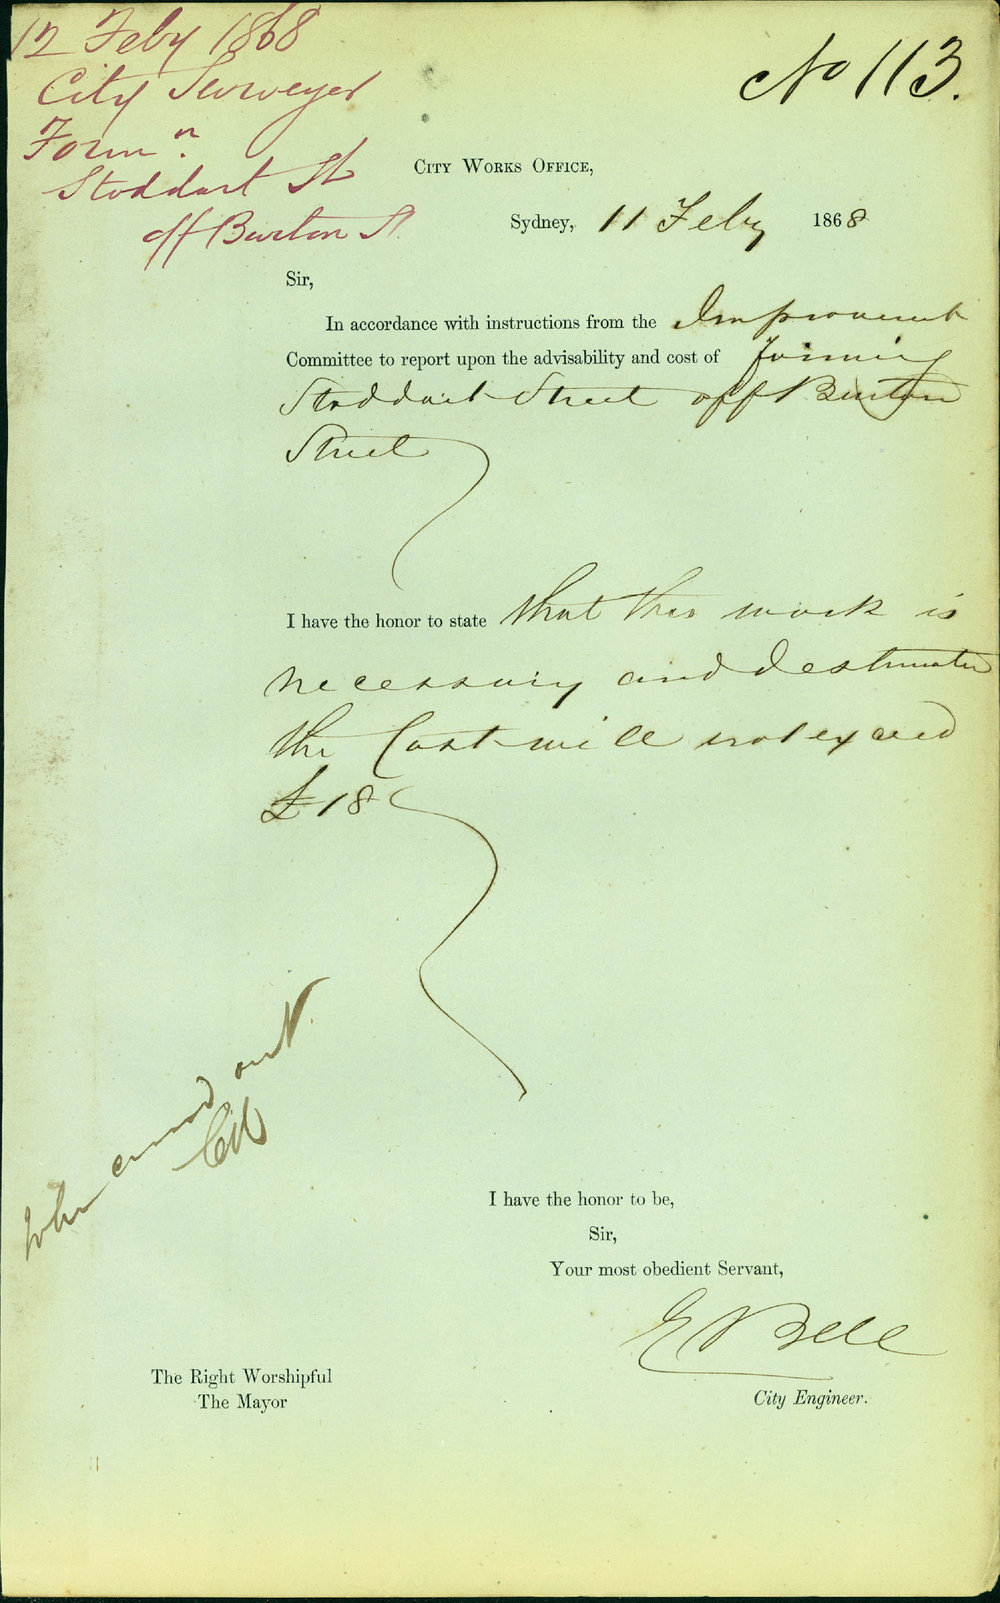 12 Feby 1868
City Surveyor
Form.n
Stoddart St
off Burton St
No 113.
City Works Office,
Sydney, 11 Feby 1868
Sir,
In accordance with instructions from the Improvement
Committee to report upon the advisability and cost of forming
Stoddart Street off Burton
Street
I have the honor to state that this work is
necessary and I estimate
the Cost will not exceed
£18
carried out
I have the honor to be,
Sir,
Your most obedient Servant,
E Bell
City Engineer.
The Right Worshipful
The Mayor